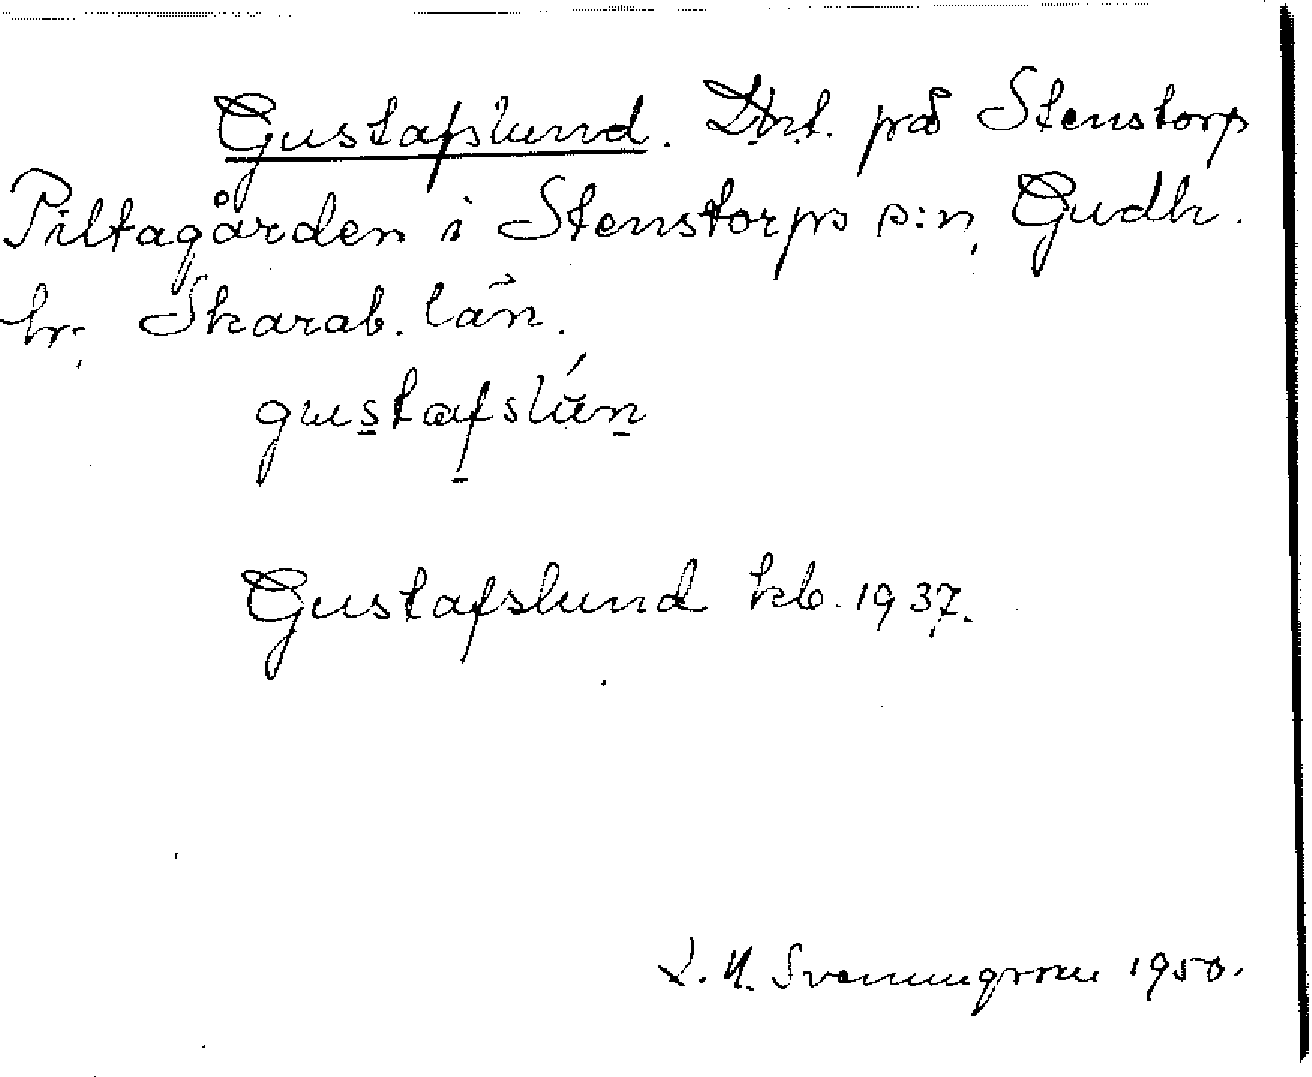 Gustafslund. Lht. på Stenstorp
Piltagården i Stenstorps s:n, Gudh.
hr. Skarab. län.
gustafslún
Gustafslund kb. 1937.
1950.